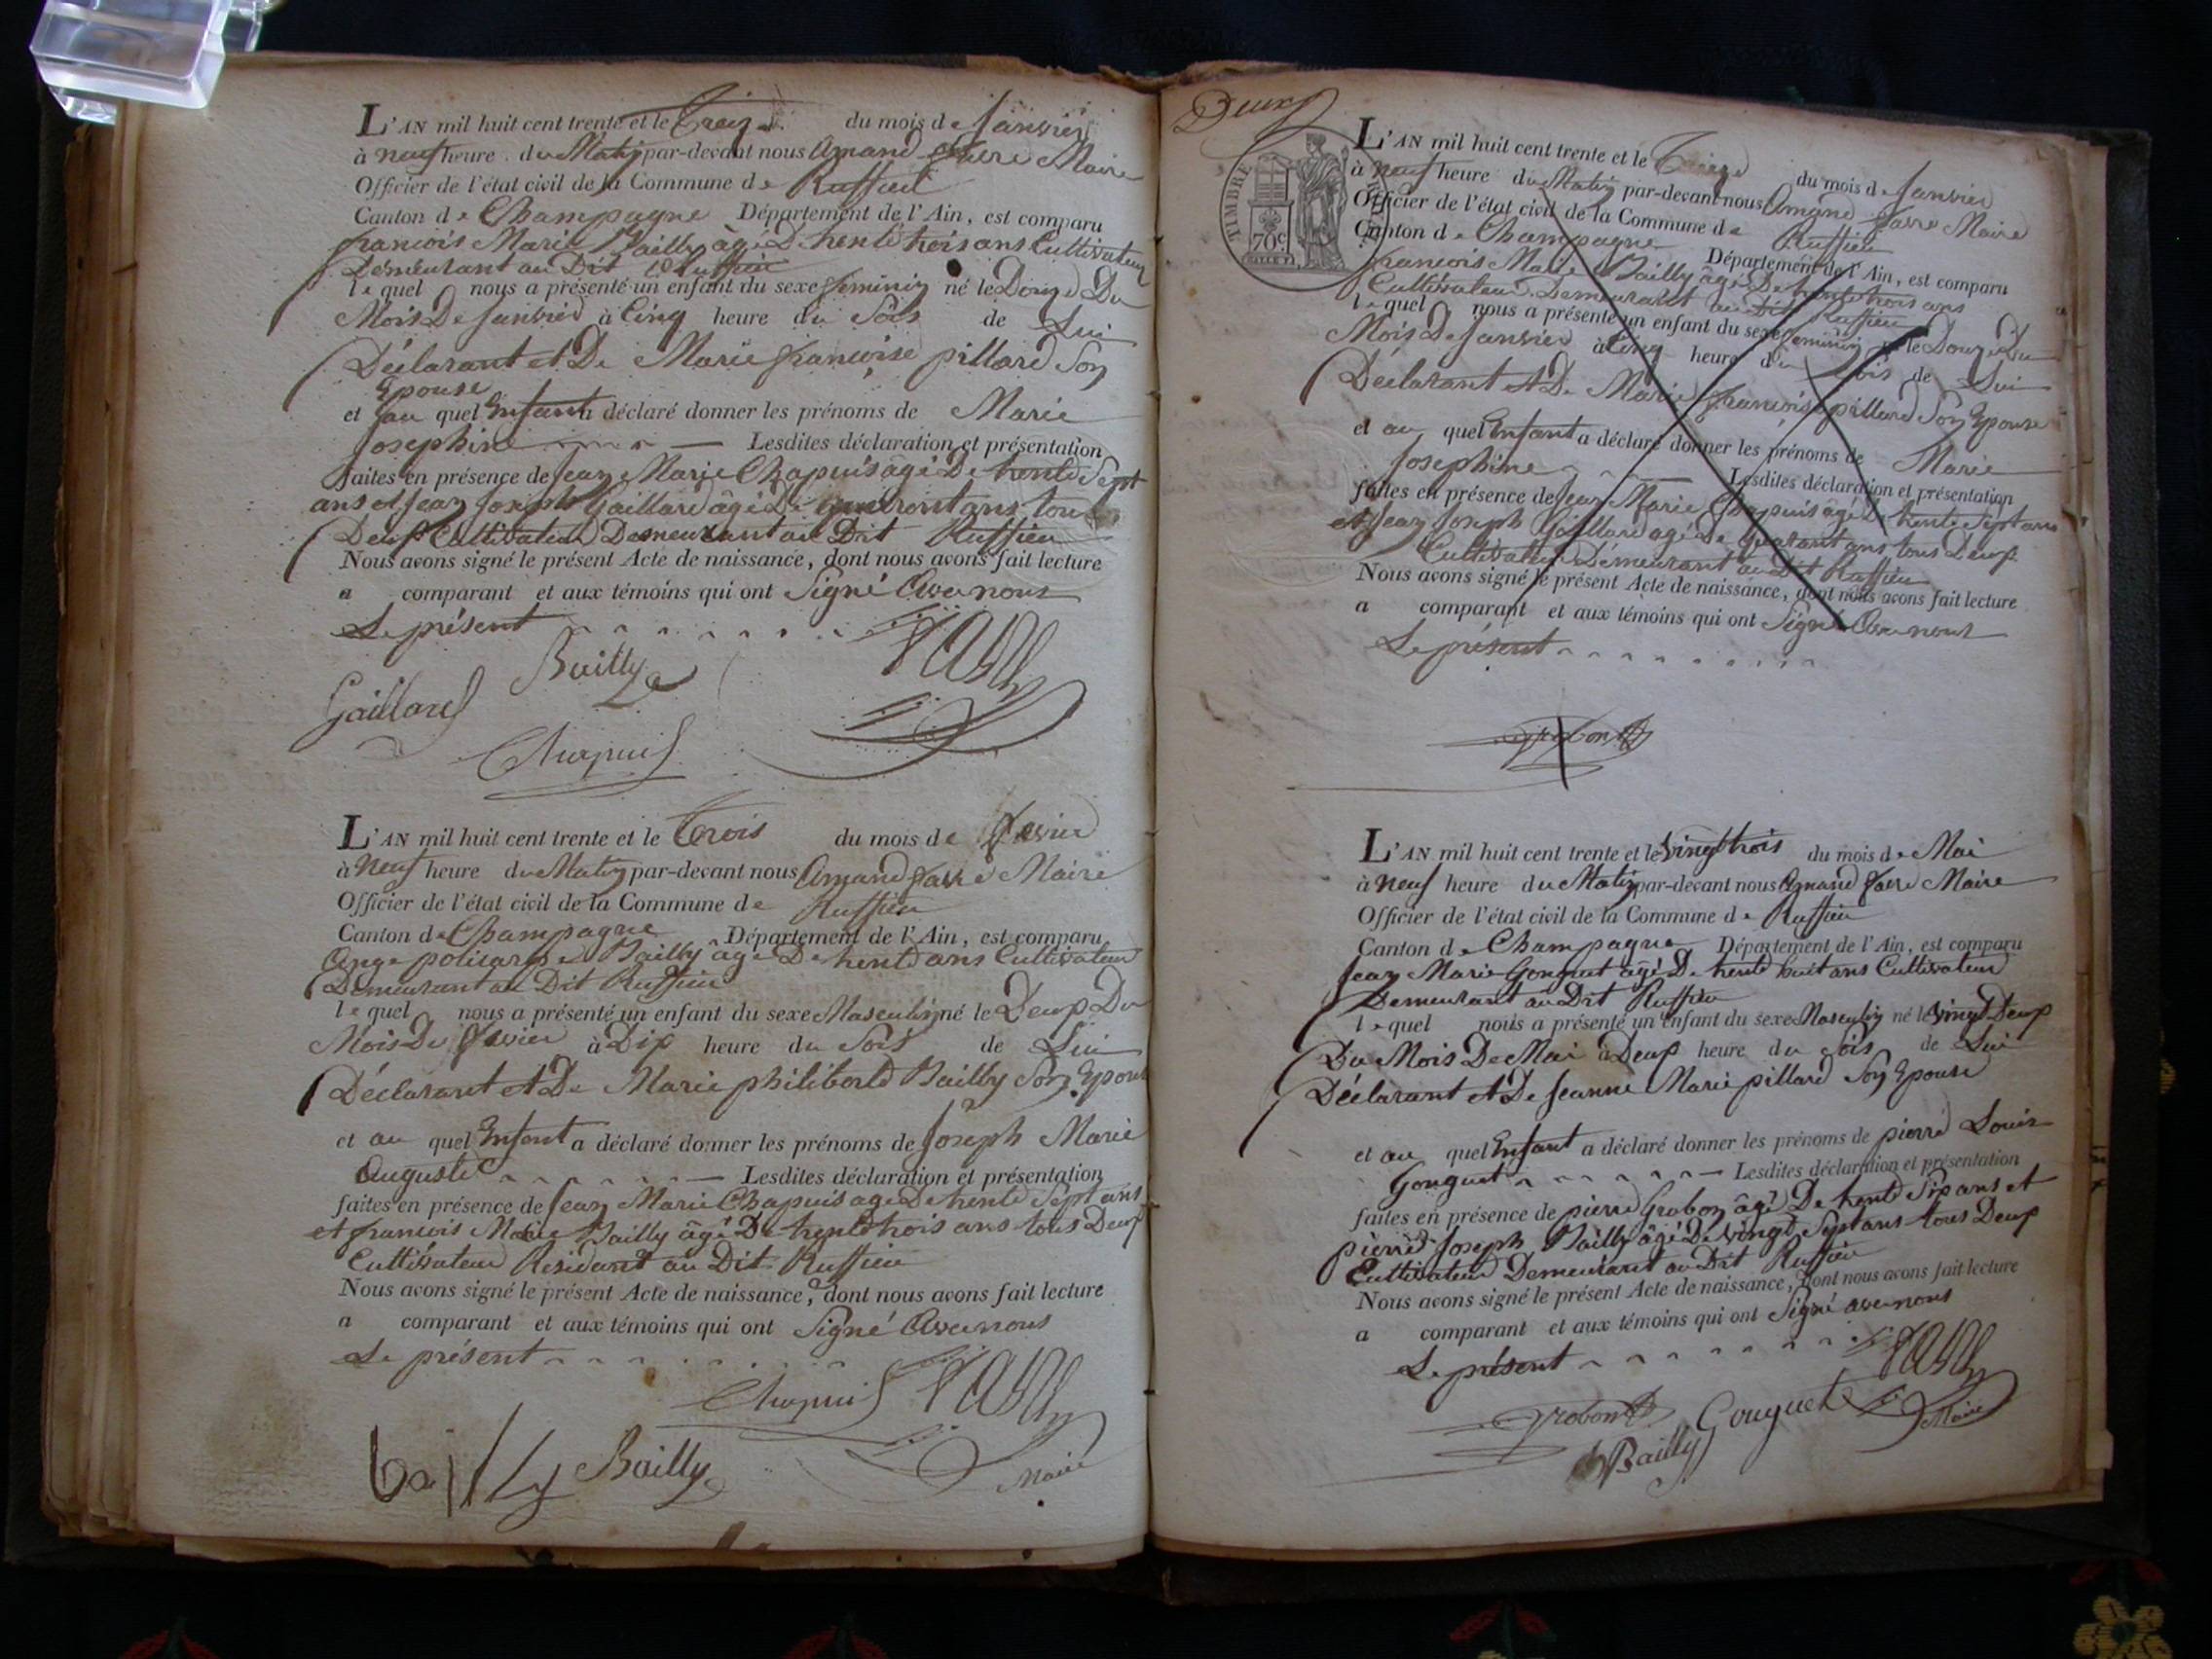 L'AN mil huit cent trente et le Treize du mois de Janvier
à neuf heure du Matin par-devant nous Amand favre Maire
Officier de l'état civil de la Commune de Ruffieu
Canton de Champagne Département de l'Ain, est comparu
francois Marie Bailly âgé De trente trois ans Cultivateur
Demeurant au Dit Ruffieu
lequel nous a présenté un enfant du sexe feminin né le Douze Du
Mois De Janvier à Cinq heure du Soir de Lui
Déclarant et De Marie francoise pillard Son
Epouse
et au quel Enfant a déclaré donner les prénoms de Marie
Josephine Lesdites déclaration et présentation
faites en présence de Jean Marie Chapuis âgé De trente Sept
ans et Jean Joseph Gaillard âgé De quarant ans tous
Deux Cultivateur Demeurant au Dit Ruffieu
Nous avons signé le présent Acte de naissance, dont nous avons fait lecture
a comparant et aux témoins qui ont Signé Avec nous
Le présent
Bailly
Gaillard
Chapuis
L'AN mil huit cent trente et le Trois du mois de fevrier
à Neuf heure du Matin par-devant nous Amand favre Maire
Officier de l'état civil de la Commune de Ruffieu
Canton de Champagne Département de l'Ain, est comparu
Ange policarpe Bailly âgé De trente ans Cultivateur
Demeurant au Dit Ruffieu
lequel nous a présenté un enfant du sexe Masculin né le Deux Du
Mois De fevrier à Dix heure du Soir de Lui
Déclarant et De Marie philiberte Bailly Son Epouse
et au quel Enfant a déclaré donner les prénoms de Joseph Marie
Auguste Lesdites déclaration et présentation
faites en présence de Jean Marie Chapuis age De trente Sept ans
et francois Marie Bailly âgé De trente trois ans tous Deux
Cultivateur Residant au Dit Ruffieu
Nous avons signé le présent Acte de naissance, dont nous avons fait lecture
a comparant et aux témoins qui ont Signé Avec nous
Le présent
Chapuis
bailly Bailly Maire
Deux
TIMBRE
70c
L'AN mil huit cent trente et le Treize du mois de Janvier
à Neuf heure du Matin par-devant nous Amand favre Maire
Officier de l'état civil de la Commune de Ruffieu
Canton de Champagne Département de l'Ain, est comparu
francois Marie Bailly âgé De trente trois ans
Cultivateur Demeurant au Dit Ruffieu
lequel nous a présenté un enfant du sexe feminin né le Douze Du
Mois De Janvier à Cinq heure du Soir de Lui
Déclarant et De Marie francoise pillard Son Epouse
et au quel Enfant a déclaré donner les prénoms de Marie
Josephine Lesdites déclaration et présentation
faites en présence de Jean Marie Chapuis âgé De trente Sept ans
et Jean Joseph Gaillard agé De Quarant ans tous Deux
Cultivateur Demeurant au Dit Ruffieu
Nous avons signé le présent Acte de naissance, dont nous avons fait lecture
a comparant et aux témoins qui ont Signé Avec nous
Le présent
L'AN mil huit cent trente et le vingt trois du mois de Mai
à Neuf heure du Matin par-devant nous Amand favre Maire
Officier de l'état civil de la Commune de Ruffieu
Canton de Champagne Département de l'Ain, est comparu
Jean Marie Gonguet âgé De trente huit ans Cultivateur
Demeurant au Dit Ruffieu
lequel nous a présenté un enfant du sexe Masculin né le vingt Deux
Du Mois De Mai à Deux heure du Soir de Lui
Déclarant et De Jeanne Marie pillard Son Epouse
et au quel Enfant a déclaré donner les prénoms de pierre Louis
Gonguet Lesdites déclaration et présentation
faites en présence de pierre Grobon âgé De trente Six ans et
pierre Joseph Bailly âgé De vingt Sept ans tous Deux
Cultivateur Demeurant au Dit Ruffieu
Nous avons signé le présent Acte de naissance, dont nous avons fait lecture
a comparant et aux témoins qui ont Signé avec nous
Le présent
Grobon Gouguet Maire
Bailly